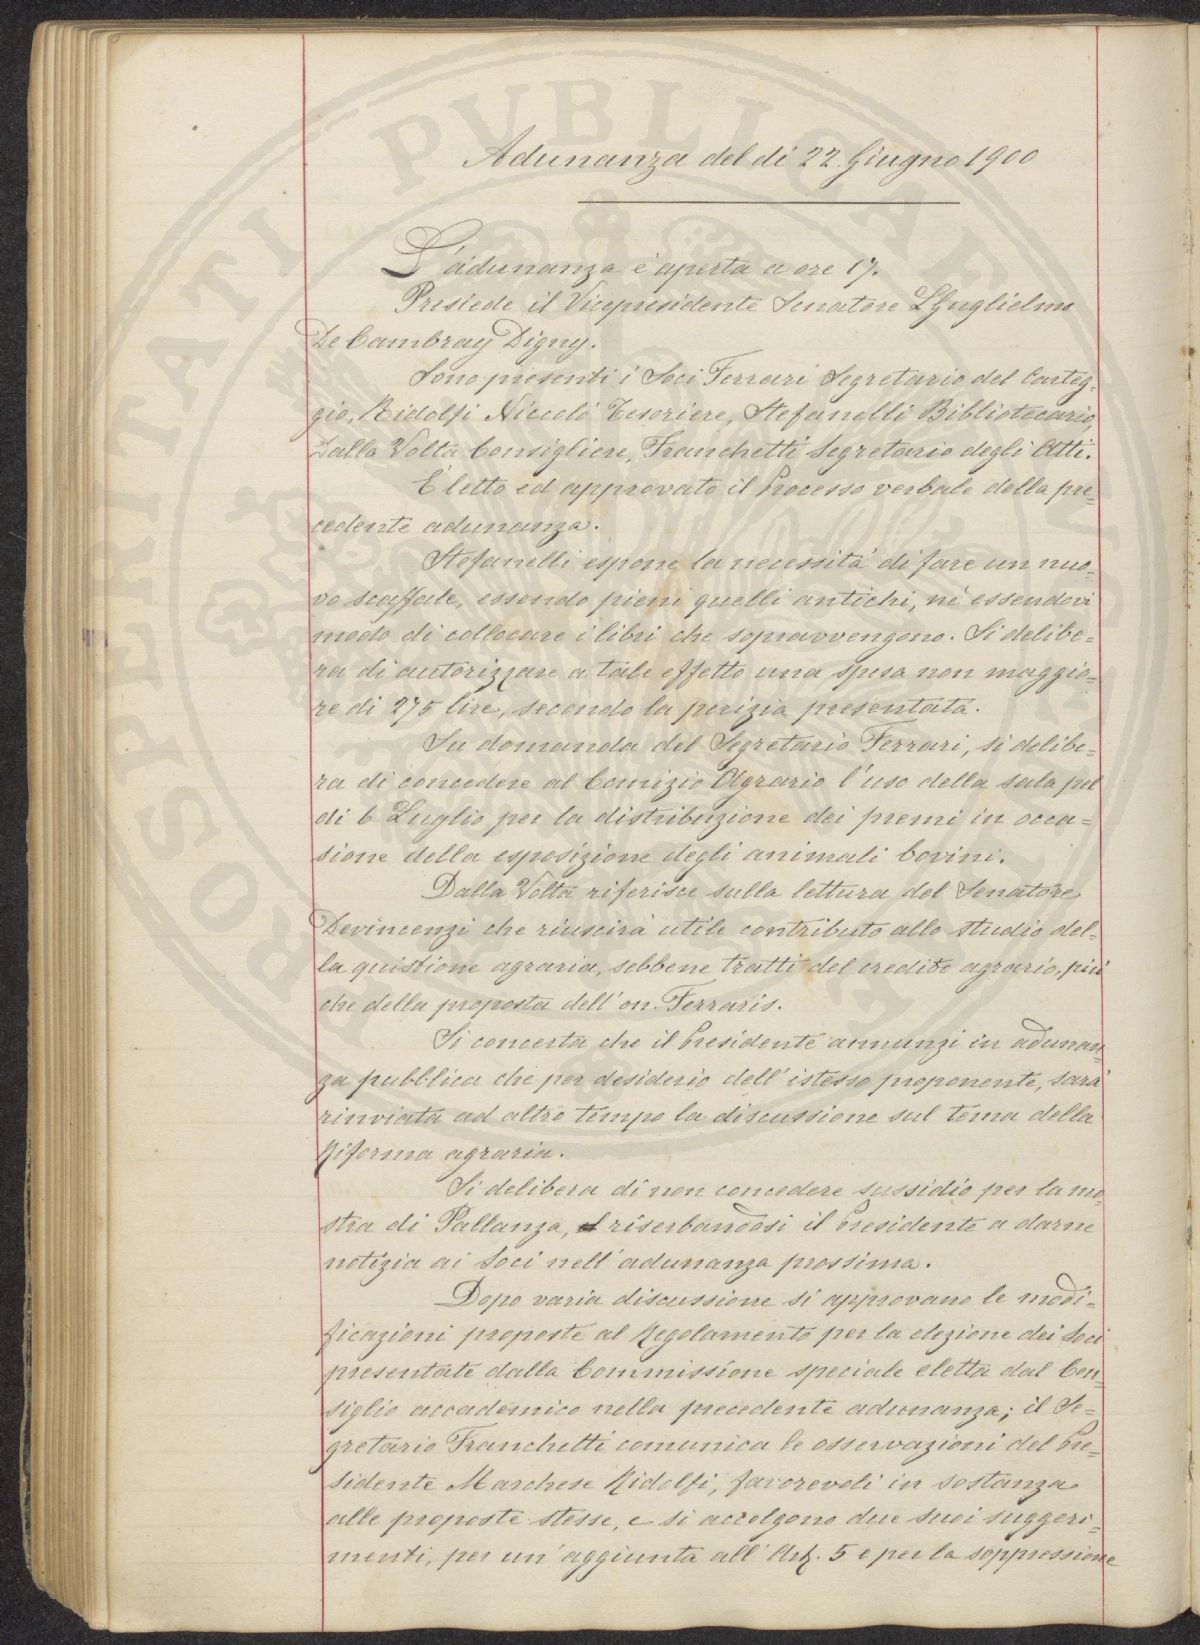 Adunanza del dì 22. Giugno 1900
L'adunanza è aperta a ore 17.
Presiede il Vicepresidente Senatore L. Guglielmo
De Cambray Digny.
Sono presenti i Soci Ferrari Segretario del Carteg-
gio, Ridolfi Niccolò Tesoriere, Stefanelli Bibliotecario,
Dalla Volta Consigliere, Franchetti Segretario degli Atti.
È letto ed approvato il Processo verbale della pre-
cedente adunanza.
Stefanelli espone la necessità di fare un nuo-
vo scaffale, essendo pieni quelli antichi, nè essendovi
modo di collocare i libri che sopravvengono. Si delibe-
ra di autorizzare a tale effetto una spesa non maggio-
re di 275 lire, secondo la perizia presentata.
Su domanda del Segretario Ferrari, si delibe-
ra di concedere al Comizio Agrario l'uso della sala pel
dì 6 Luglio per la distribuzione dei premi in occa-
sione della esposizione degli animali bovini.
Dalla Volta riferisce sulla lettura del Senatore
Devincenzi che riuscirà utile contributo allo studio del-
la quistione agraria, sebbene tratti del credito agrario, più
che della proposta dell'on. Ferraris.
Si concerta che il Presidente annunzi in adunan-
za pubblica che per desiderio dell'istesso proponente, sarà
rinviata ad altro tempo la discussione sul tema della
Riforma agraria.
Si delibera di non concedere sussidio per la mo-
stra di Pallanza, riserbandosi il Presidente a darne
notizia ai Soci nell'adunanza prossima.
Dopo varia discussione si approvano le modi-
ficazioni proposte al Regolamento per la elezione dei Soci
presentate dalla Commissione speciale eletta dal Con-
siglio accademico nella precedente adunanza; il Se-
gretario Franchetti comunica le osservazioni del Pre-
sidente Marchese Ridolfi, favorevoli in sostanza
alle proposte stesse, e si accolgono due suoi suggeri-
menti, per un'aggiunta all'Art. 5 e per la soppressione
PROSPERITATI PUBLICAE